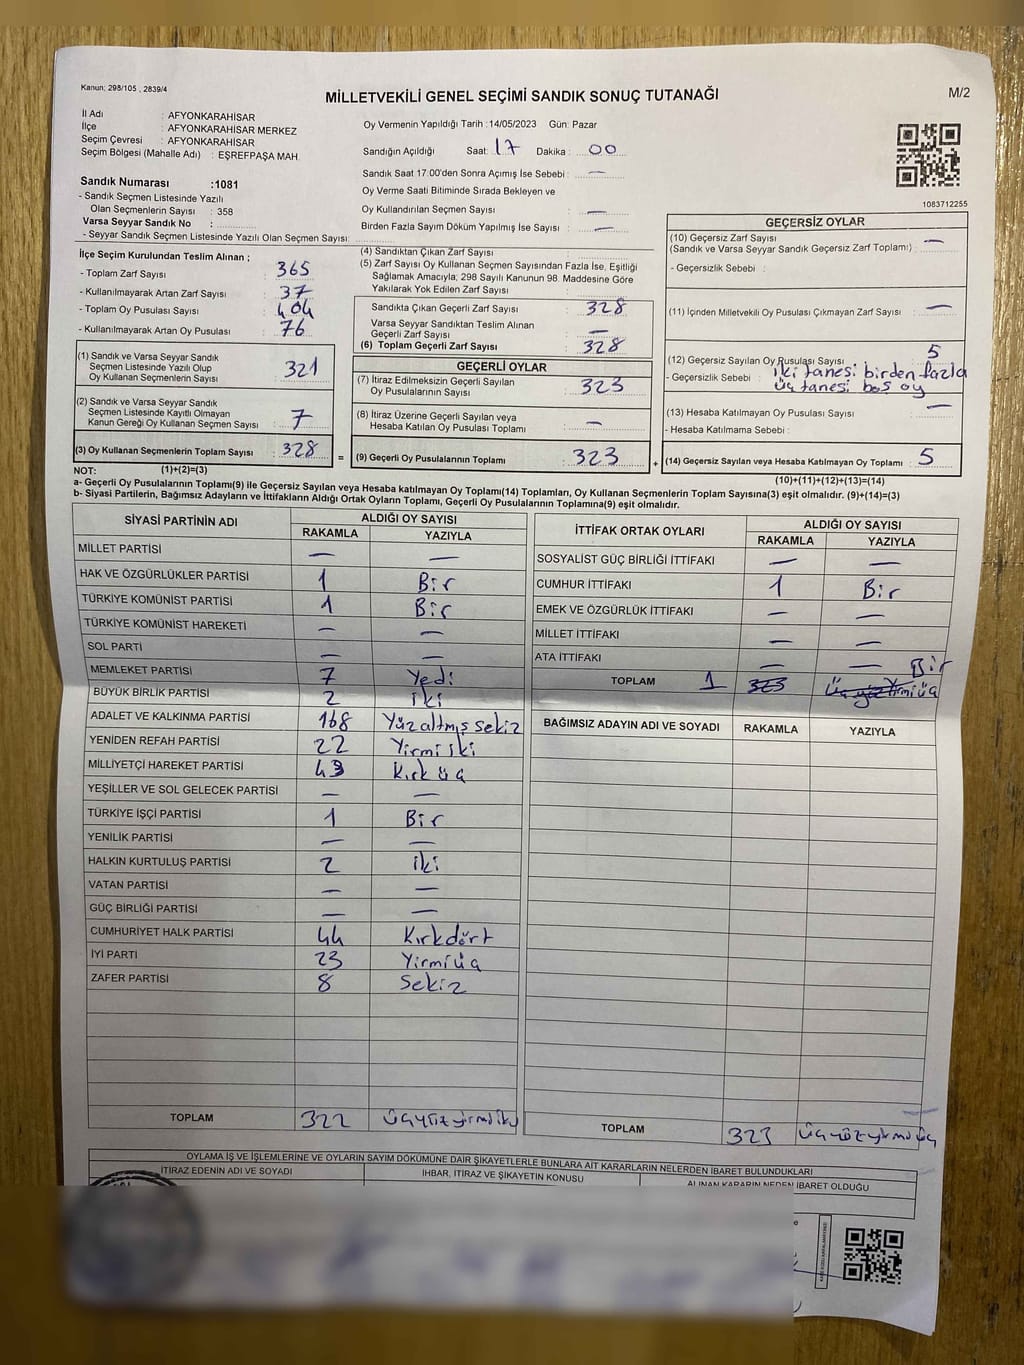 Kanun: 298/105 , 2839/4
MİLLETVEKİLİ GENEL SEÇİMİ SANDIK SONUÇ TUTANAĞI
M/2
İl Adı : AFYONKARAHİSAR
İlçe : AFYONKARAHİSAR MERKEZ
Seçim Çevresi : AFYONKARAHİSAR
Seçim Bölgesi (Mahalle Adı) : EŞREFPAŞA MAH.
Sandık Numarası :1081
- Sandık Seçmen Listesinde Yazılı
Olan Seçmenlerin Sayısı : 358
Varsa Seyyar Sandık No :
- Seyyar Sandık Seçmen Listesinde Yazılı Olan Seçmen Sayısı:
Oy Vermenin Yapıldığı Tarih :14/05/2023 Gün: Pazar
Sandığın Açıldığı Saat: 17 Dakika : 00
Sandık Saat 17.00'den Sonra Açımış İse Sebebi : —
Oy Verme Saati Bitiminde Sırada Bekleyen ve
Oy Kullandırılan Seçmen Sayısı : —
Birden Fazla Sayım Döküm Yapılmış İse Sayısı : —
1083712255
İlçe Seçim Kurulundan Teslim Alınan ;
- Toplam Zarf Sayısı : 365
- Kullanılmayarak Artan Zarf Sayısı : 37
- Toplam Oy Pusulası Sayısı : 404
- Kullanılmayarak Artan Oy Pusulası : 76
(1) Sandık ve Varsa Seyyar Sandık
Seçmen Listesinde Yazılı Olup
Oy Kullanan Seçmenlerin Sayısı : 321
(2) Sandık ve Varsa Seyyar Sandık
Seçmen Listesinde Kayıtlı Olmayan
Kanun Gereği Oy Kullanan Seçmen Sayısı : 7
(3) Oy Kullanan Seçmenlerin Toplam Sayısı : 328
=
(4) Sandıktan Çıkan Zarf Sayısı :
(5) Zarf Sayısı Oy Kullanan Seçmen Sayısından Fazla İse, Eşitliği
Sağlamak Amacıyla; 298 Sayılı Kanunun 98. Maddesine Göre
Yakılarak Yok Edilen Zarf Sayısı :
Sandıkta Çıkan Geçerli Zarf Sayısı : 328
Varsa Seyyar Sandıktan Teslim Alınan
Geçerli Zarf Sayısı : —
(6) Toplam Geçerli Zarf Sayısı : 328
GEÇERLİ OYLAR
(7) İtiraz Edilmeksizin Geçerli Sayılan
Oy Pusulalarının Sayısı : 323
(8) İtiraz Üzerine Geçerli Sayılan veya
Hesaba Katılan Oy Pusulası Toplamı : —
(9) Geçerli Oy Pusulalarının Toplamı : 323
+
GEÇERSİZ OYLAR
(10) Geçersiz Zarf Sayısı
(Sandık ve Varsa Seyyar Sandık Geçersiz Zarf Toplamı) : —
- Geçersizlik Sebebi :
(11) İçinden Milletvekili Oy Pusulası Çıkmayan Zarf Sayısı : —
(12) Geçersiz Sayılan Oy Pusulası Sayısı : 5
- Geçersizlik Sebebi : iki tanesi birden fazla
üç tanesi boş oy
(13) Hesaba Katılmayan Oy Pusulası Sayısı : —
- Hesaba Katılmama Sebebi :
(14) Geçersiz Sayılan veya Hesaba Katılmayan Oy Toplamı : 5
NOT: (1)+(2)=(3)
(10)+(11)+(12)+(13)=(14)
a- Geçerli Oy Pusulalarının Toplamı(9) ile Geçersiz Sayılan veya Hesaba Katılmayan Oy Toplamı(14) Toplamları, Oy Kullanan Seçmenlerin Toplam Sayısına(3) eşit olmalıdır. (9)+(14)=(3)
b- Siyasi Partilerin, Bağımsız Adayların ve İttifakların Aldığı Ortak Oyların Toplamı, Geçerli Oy Pusulalarının Toplamına(9) eşit olmalıdır.
SİYASİ PARTİNİN ADI ALDIĞI OY SAYISI
RAKAMLA YAZIYLA
MİLLET PARTİSİ — —
HAK VE ÖZGÜRLÜKLER PARTİSİ 1 Bir
TÜRKİYE KOMÜNİST PARTİSİ 1 Bir
TÜRKİYE KOMÜNİST HAREKETİ — —
SOL PARTİ — —
MEMLEKET PARTİSİ 7 Yedi
BÜYÜK BİRLİK PARTİSİ 2 iki
ADALET VE KALKINMA PARTİSİ 168 Yüzaltmış sekiz
YENİDEN REFAH PARTİSİ 22 Yirmi iki
MİLLİYETÇİ HAREKET PARTİSİ 43 Kırk üç
YEŞİLLER VE SOL GELECEK PARTİSİ — —
TÜRKİYE İŞÇİ PARTİSİ 1 Bir
YENİLİK PARTİSİ — —
HALKIN KURTULUŞ PARTİSİ 2 iki
VATAN PARTİSİ — —
GÜÇ BİRLİĞİ PARTİSİ — —
CUMHURİYET HALK PARTİSİ 44 Kırkdört
İYİ PARTİ 23 Yirmiüç
ZAFER PARTİSİ 8 Sekiz
TOPLAM 322 üçyüzyirmiiki
İTTİFAK ORTAK OYLARI ALDIĞI OY SAYISI
RAKAMLA YAZIYLA
SOSYALİST GÜÇ BİRLİĞİ İTTİFAKI — —
CUMHUR İTTİFAKI 1 Bir
EMEK VE ÖZGÜRLÜK İTTİFAKI — —
MİLLET İTTİFAKI — —
ATA İTTİFAKI — —
TOPLAM 1 323 Üçyüzyirmiüç Bir
BAĞIMSIZ ADAYIN ADI VE SOYADI RAKAMLA YAZIYLA
TOPLAM 323 Üçyüzyirmiüç
OYLAMA İŞ VE İŞLEMLERİNE VE OYLARIN SAYIM DÖKÜMÜNE DAİR ŞİKAYETLERLE BUNLARA AİT KARARLARIN NELERDEN İBARET BULUNDUKLARI
İTİRAZ EDENİN ADI VE SOYADI
İHBAR, İTİRAZ VE ŞİKAYETİN KONUSU
ALINAN KARARIN NEDEN İBARET OLDUĞU